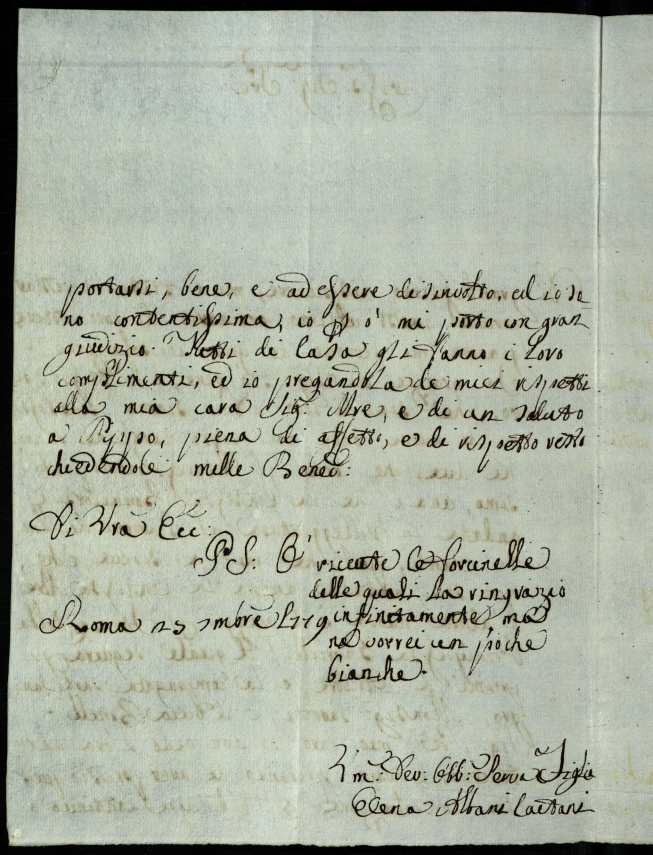 portarsi, bene, e ad essere disinvolto, ed io so
no contentissima, io p̃ ò mi porto con gran
giudizio. Tutti di Casa gli fanno i loro
complimenti, ed io pregandola de miei rispetti
alla mia cara Sig.ª Mre, e di un saluto
a Peppo, piena di affetto, e di rispetto resto
chiedendole mille Bened:
Di Vrã Ecc:
P.S. O' riceute le forcinelle
delle quali la ringrazio
infinitamente ma
ne vorrei un poche
bianche.
Roma 25 mbre
Um.ª Dev: Obb: Serva e Figlia
Elena Albani Caetani